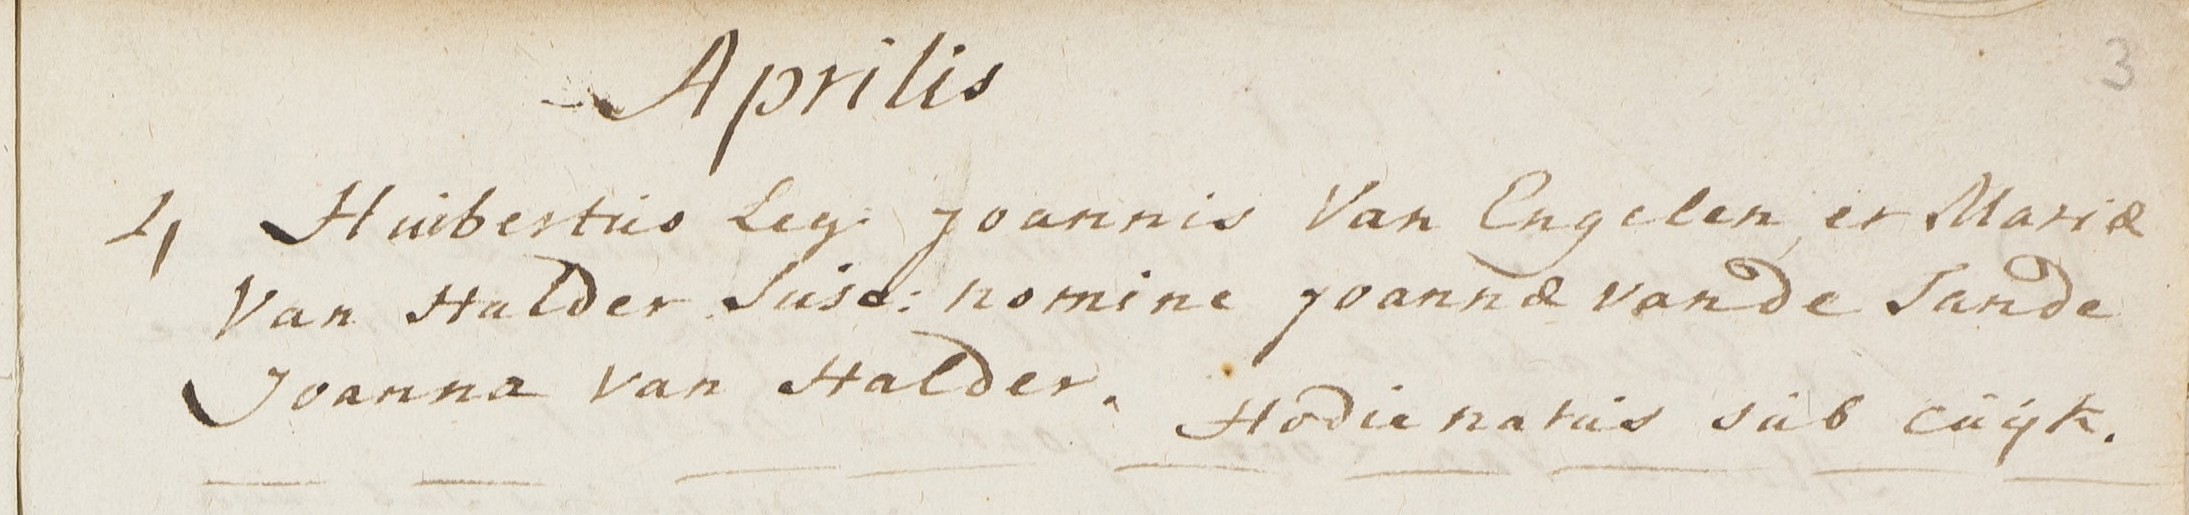 Aprilis
3
4 Huibertus Leg: Joannis Van Engelen et Mariæ
Van Halder Susc: nomine Joannæ van de Sande
Joanna Van Halder.
Hodie natus sub Cuÿk.